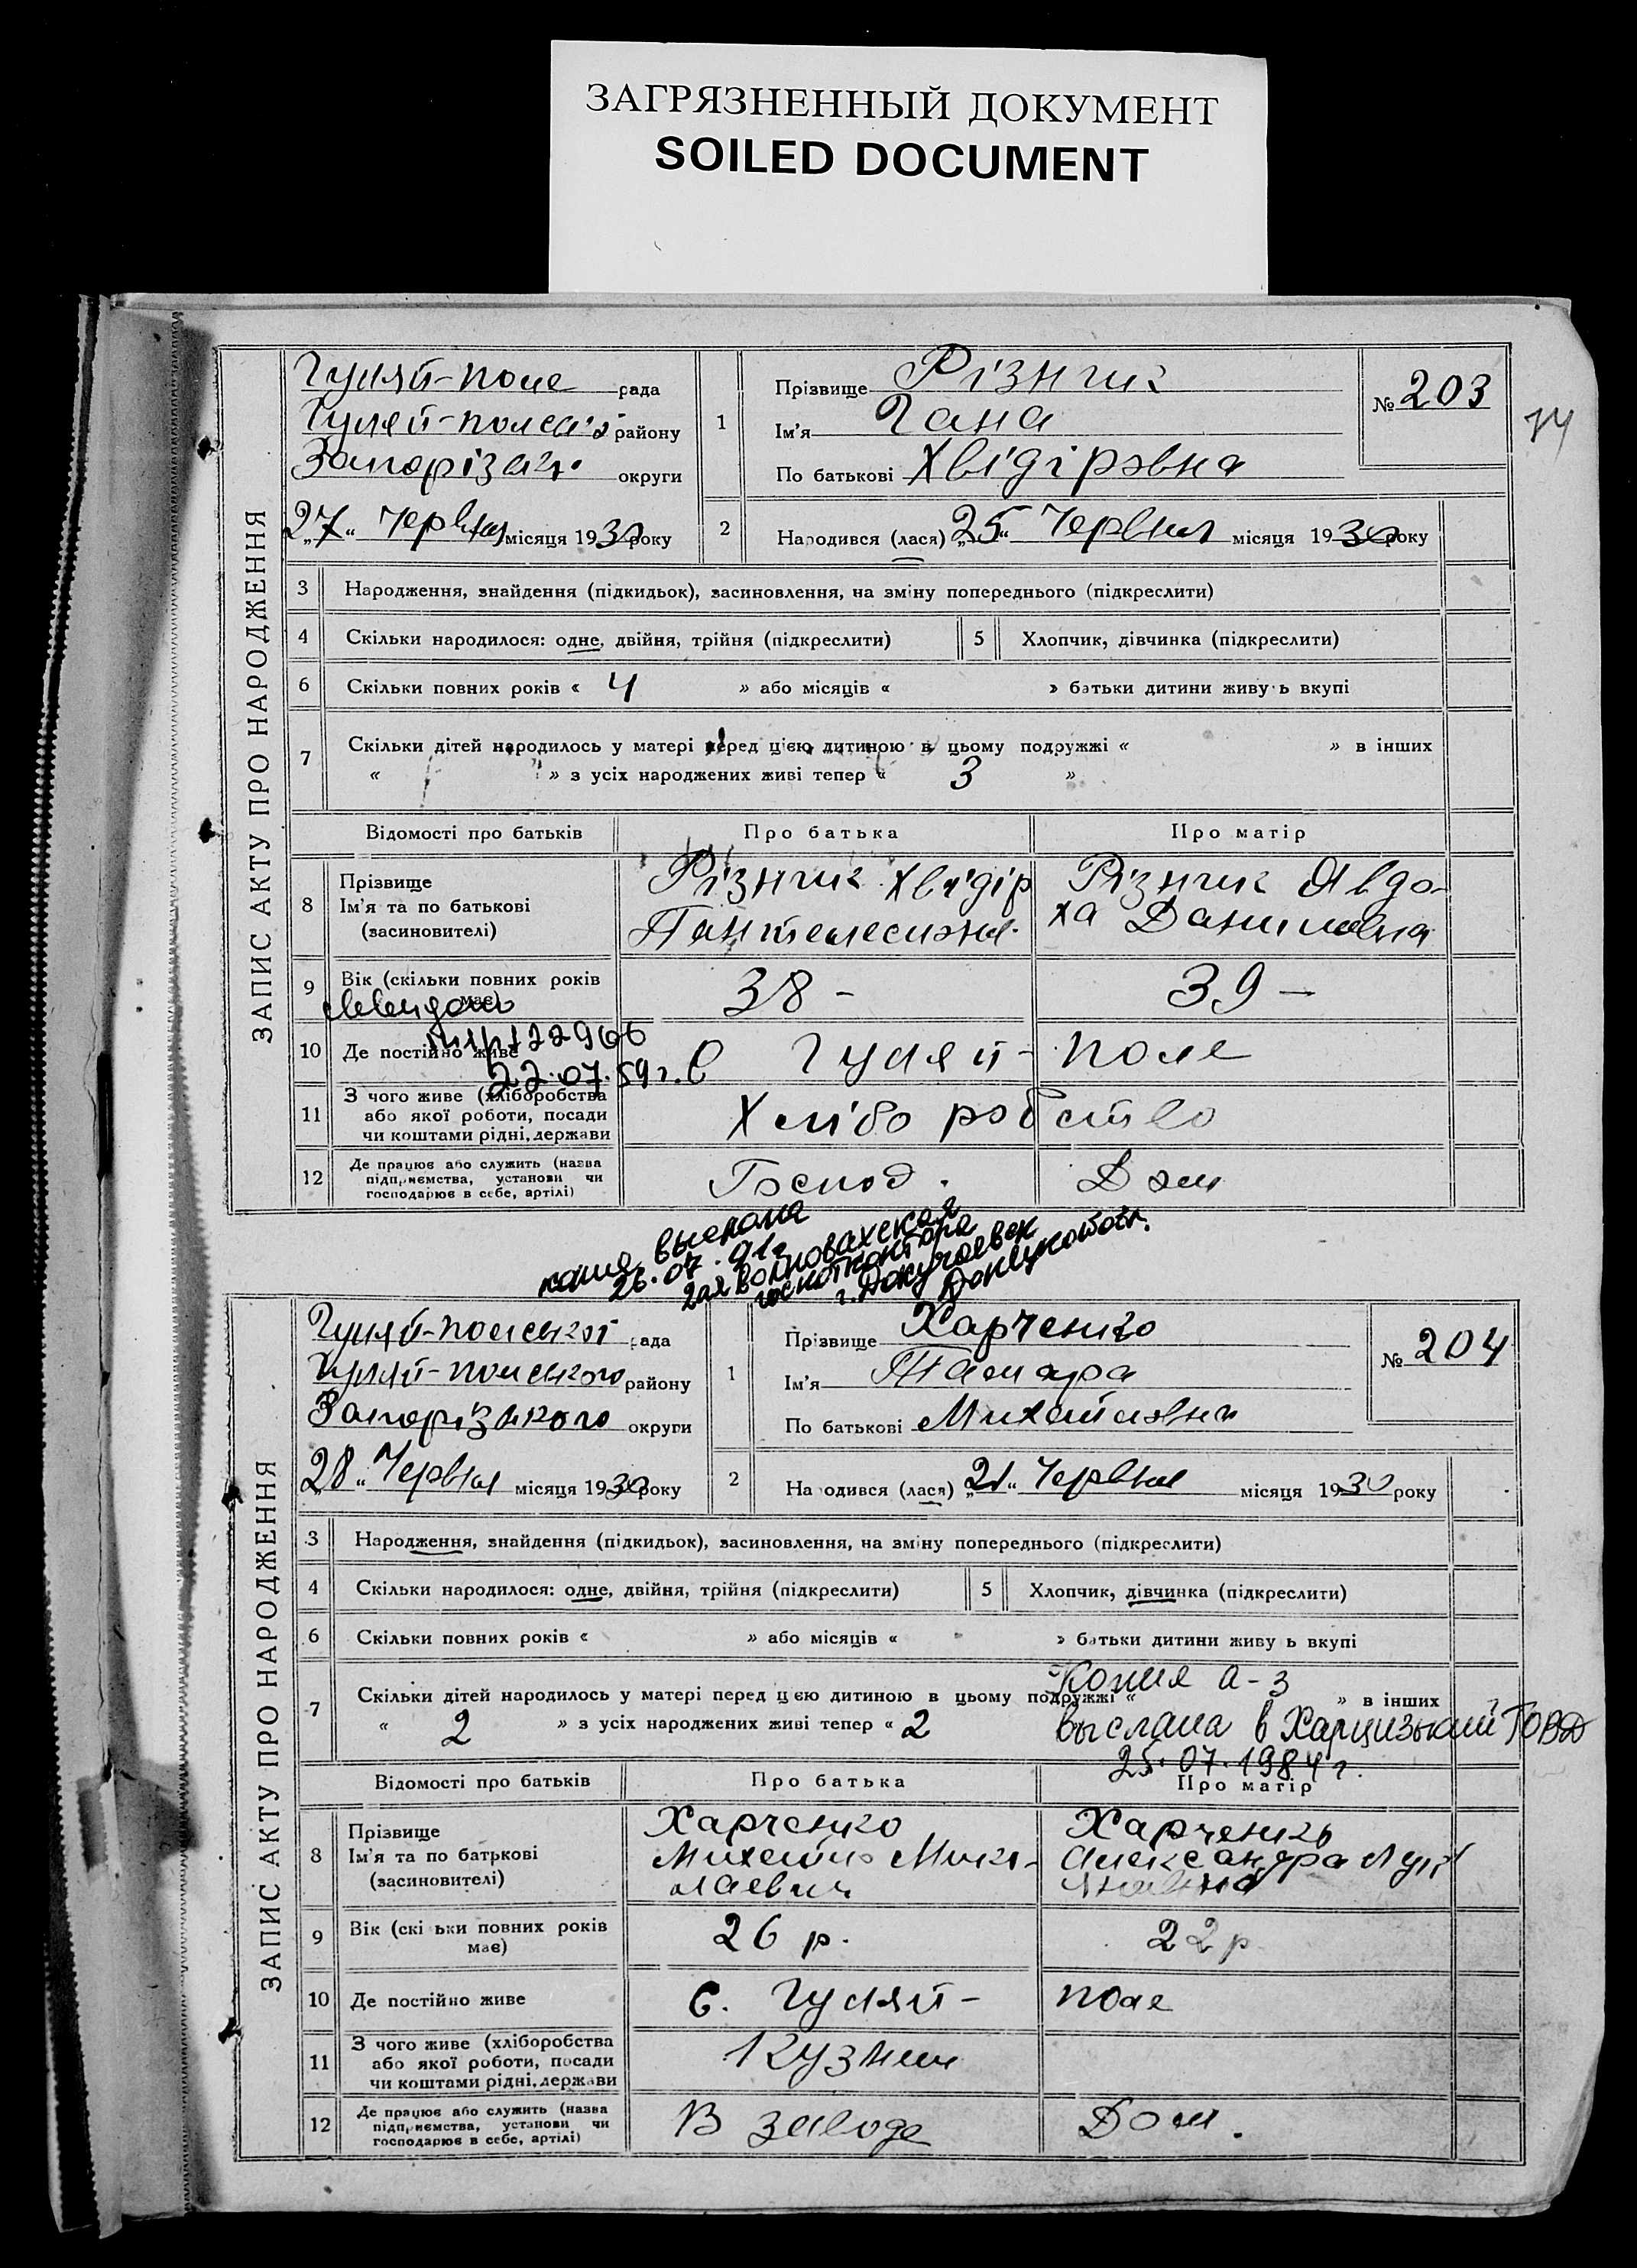 ЗАГРЯЗНЕННЫЙ ДОКУМЕНТ
SOILED DOCUMENT
74
ЗАПИС АКТУ ПРО НАРОДЖЕННЯ
Гуляй-поле рада
Гуляй-польськ району
Запорізьк. округи
„27“ Червня місяця 1930 року
1
Прізвище Різник
Ім'я Гана
По батькові Хвідірзвна
№ 203
2
Народився (лася) „25“ Червня місяця 1930 року
3 Народження, знайдення (підкидьок), засиновлення, на зміну попереднього (підкреслити)
4 Скільки народилося: одне, двійня, трійня (підкреслити) 5 Хлопчик, дівчинка (підкреслити)
6 Скільки повних років « 4 » або місяців « » батьки дитини живу ь вкупі
7 Скільки дітей народилось у матері перед цією дитиною в цьому подружжі « » в інших
« » з усіх народжених живі тепер « 3 »
Відомості про батьків Про батька Про матір
8 Прізвище Ім'я та по батькові (засновителі)
Різник Хвідір
Різник Явдо-
ха Данилівна
9 Вік (скільки повних років має) 38 - 39 -
22.07.59 г.
10 Де постійно живе с Гуляй- поле
11 З чого живе (хліборобства або якої роботи, посади чи коштами рідні, держави Хліборобство
12 Де працює або служить (назва підприємства, установи чи господарює в себе, артілі) Господ. Дом
копия выслана
26.07.91г
г. Докучаевск
ЗАПИС АКТУ ПРО НАРОДЖЕННЯ
Гуляй-польської рада
Гуляй-польського району
Запорізького округи
„28“ Червня місяця 1930 року
1
Прізвище Харченко
Ім'я Тамара
По батькові Михайлівна
№ 204
2
На одився (лася) „21“ Червня місяця 1930 року
3 Народження, знайдення (підкидьок), засиновлення, на зміну попереднього (підкреслити)
4 Скільки народилося: одне, двійня, трійня (підкреслити) 5 Хлопчик, дівчинка (підкреслити)
6 Скільки повних років « » або місяців « » батьки дитини живу ь вкупі
7 Скільки дітей народилось у матері перед цією дитиною в цьому подружжі « » в інших
« 2 » з усіх народжених живі тепер « 2
Копия а-з
выслана в Харцизький ГОВД
25.07.1984 г.
Відомості про батьків Про батька Про матір
8 Прізвище Ім'я та по батркові (засиновителі)
Харченко
Михайло Мико-
лаевич
Харченко
Александра
9 Вік (скі ьки повних років має) 26 р. 22 р
10 Де постійно живе с. Гуляй- поле
11 З чого живе (хліборобства або якої роботи, посади чи коштами рідні, держави Кузнец
12 Де працює або служить (назва підприємства, установи чи господарює в себе, артілі) В заводе Дом.